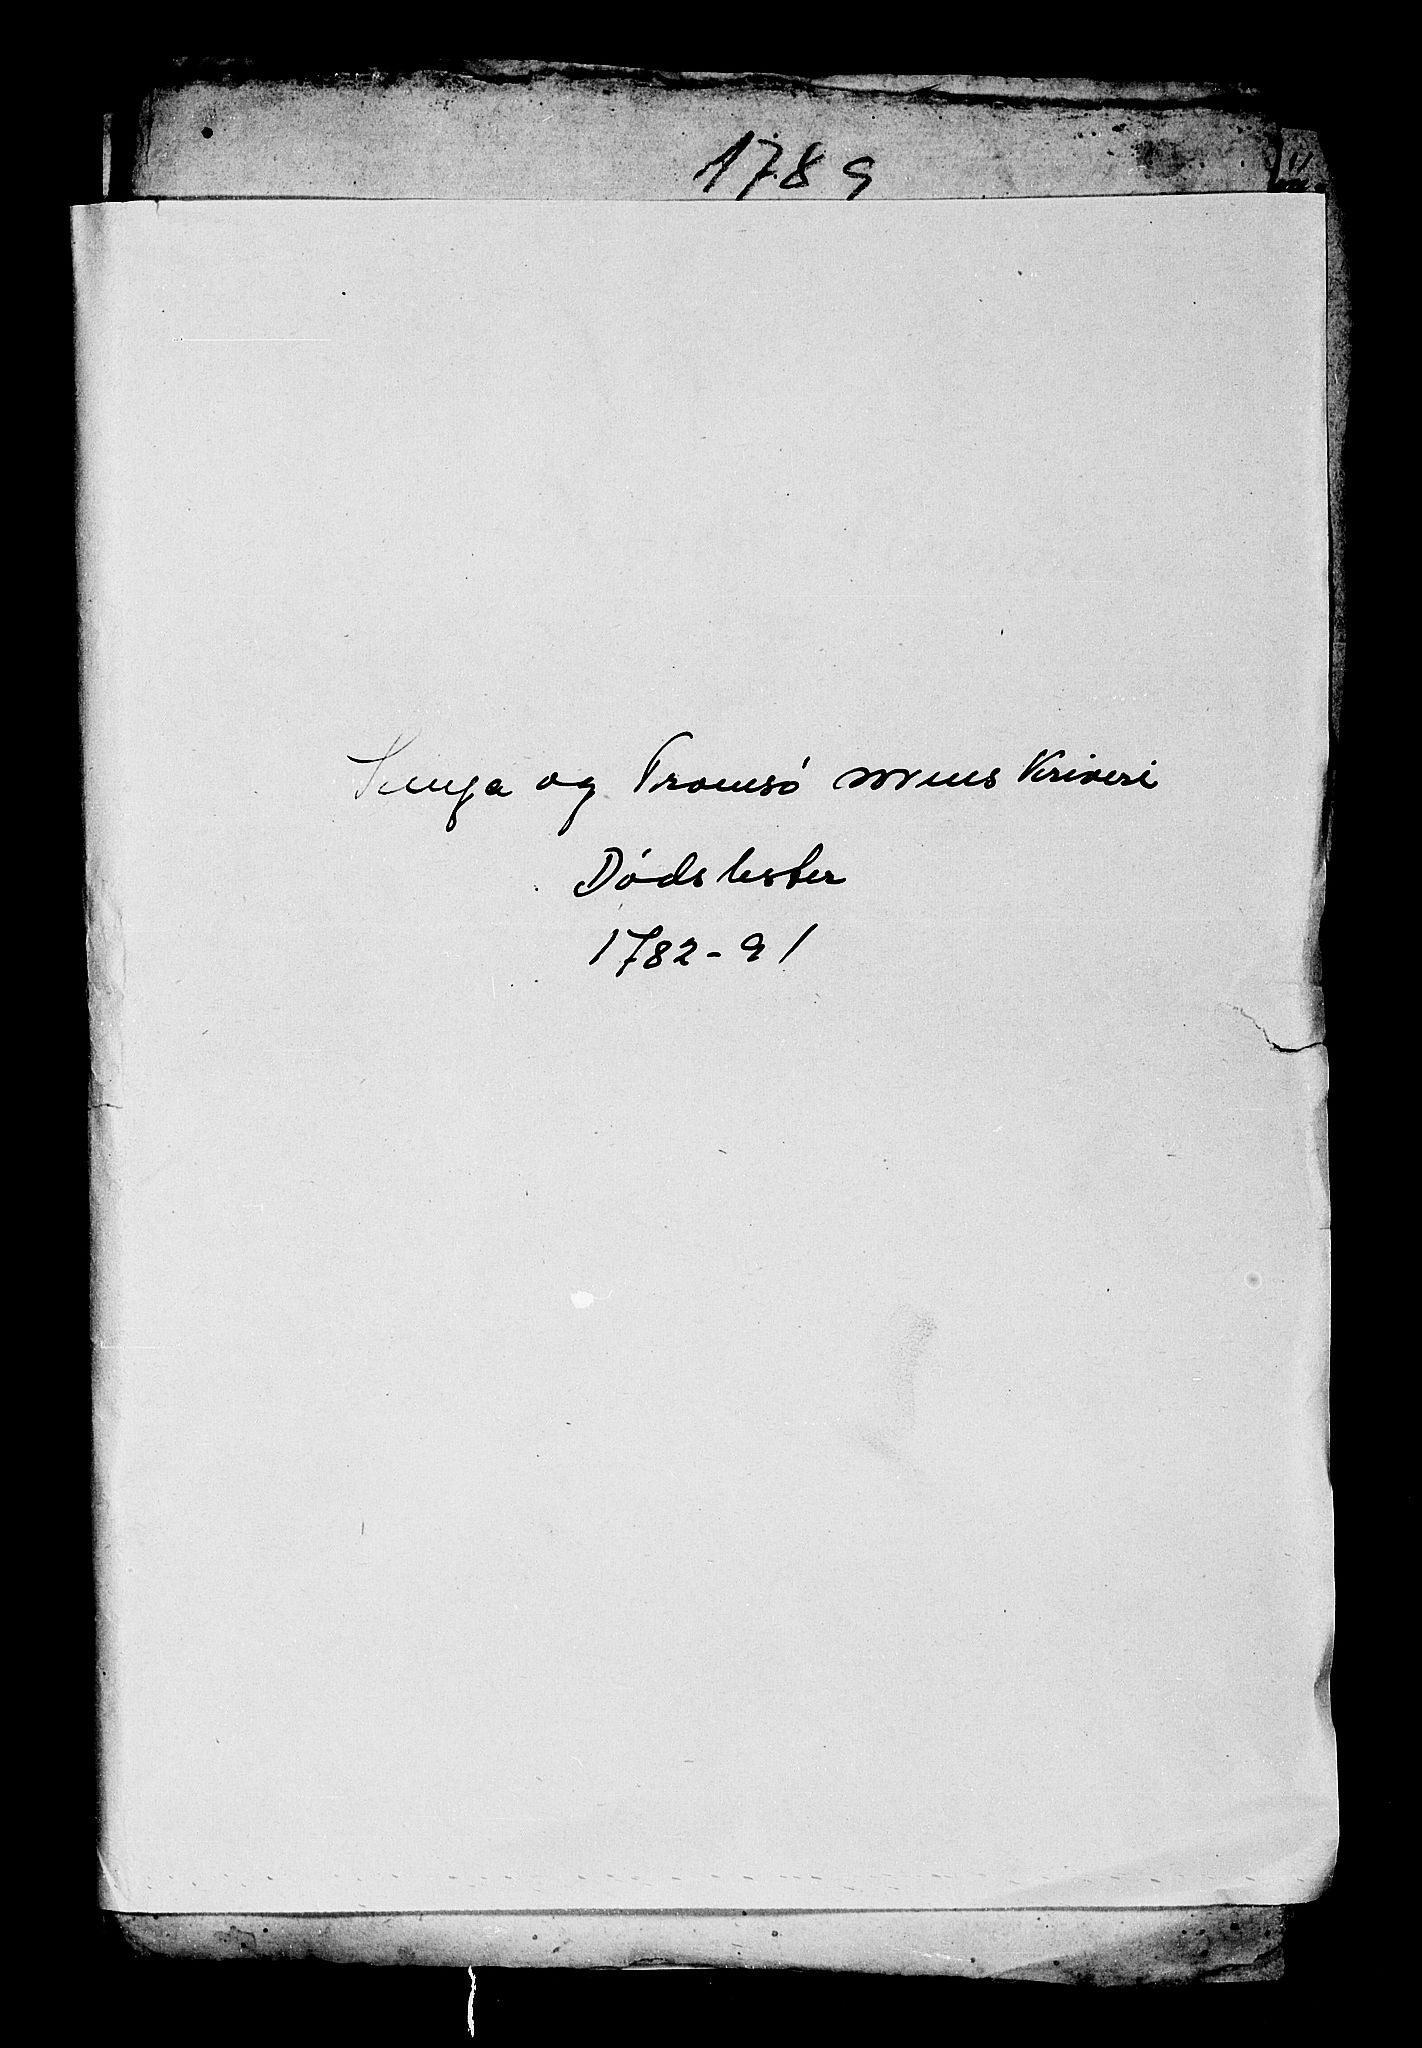 1789
Senja og Tromsö sorenskriveri
Dödslister
1782-91